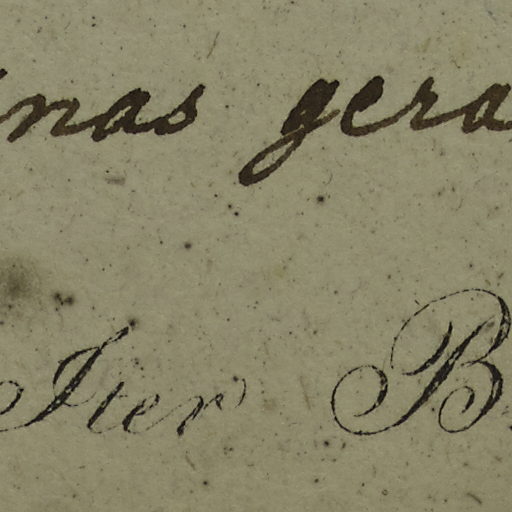 inas gera
Iter B